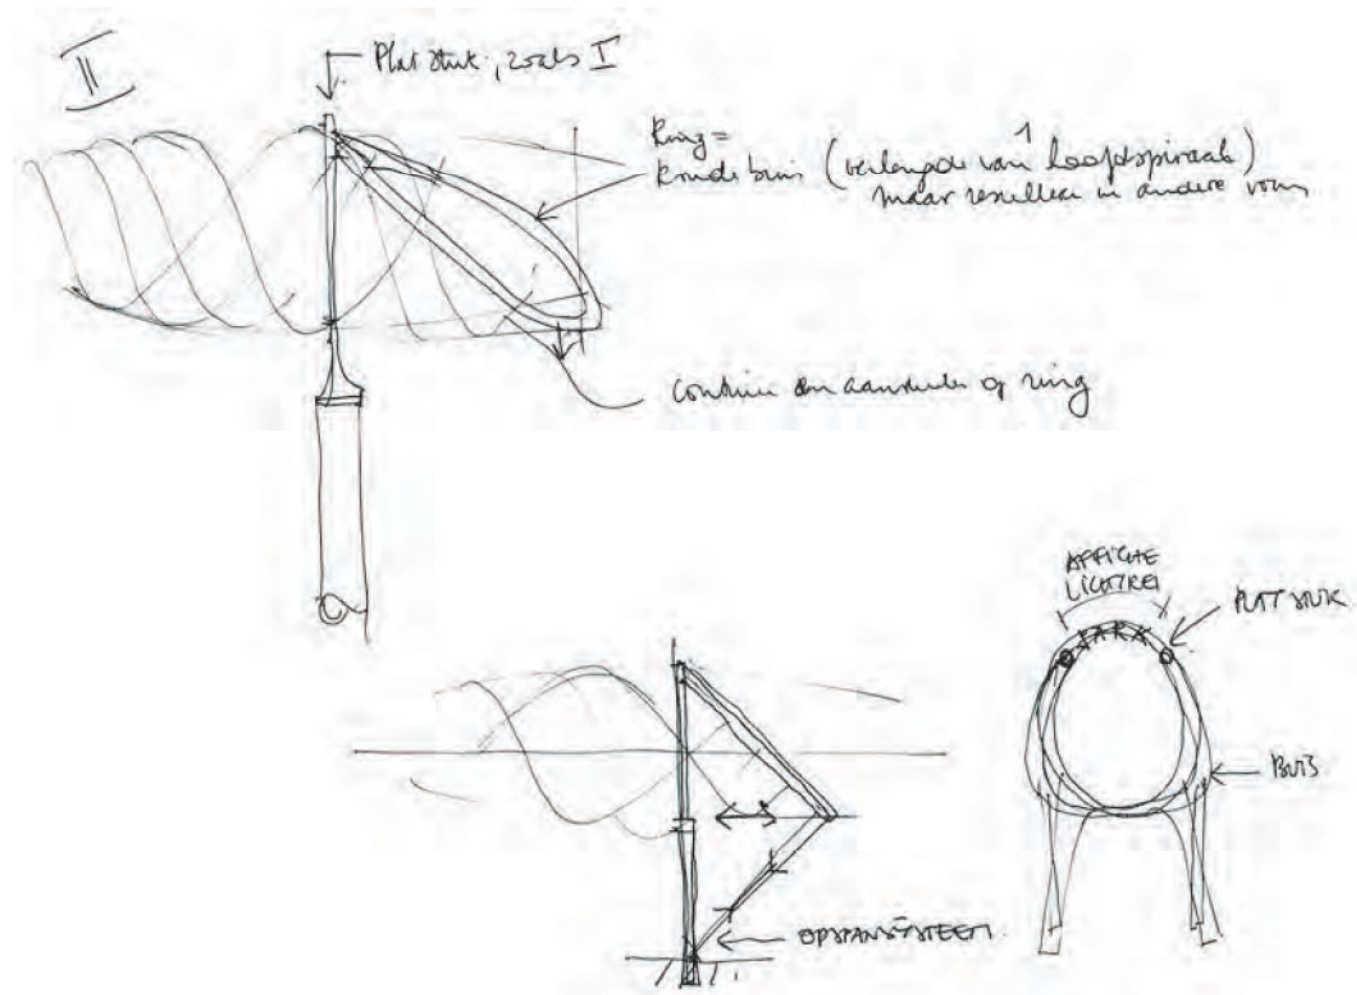 II
Plat stuk, zoals I
Ring =
Ronde buis (verlengde van 1 hoofdspiraal)
maar resulteer in andere vorm
aansluiten op ring
AFFICHE
LICHTREI
PLAT STUK
JARX
BUIS
OPSPANSYSTEEM